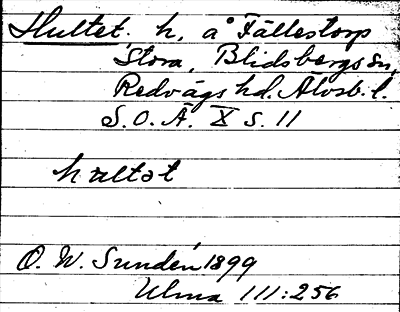 Hultet. h, å Fällestorp
Stora, Blidsbergs sn,
Redvägs hd. Älvsb. l.
S. O. Ä. X s. 11
hultət
O. W. Sundén 1899
Ulma 111:256